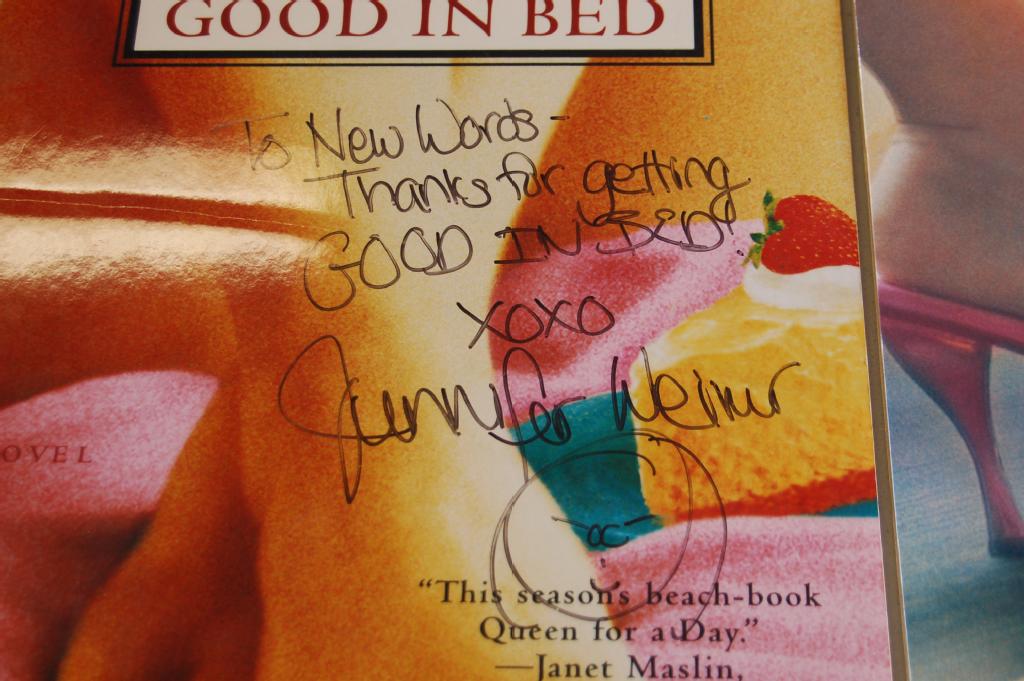 GOOD IN BED
To New Words-
Thanks for getting
GOOD IN BED!
XOXO
Jennifer Weiner
OVEL
“This season's beach-book
Queen for a Day.”
—Janet Maslin,